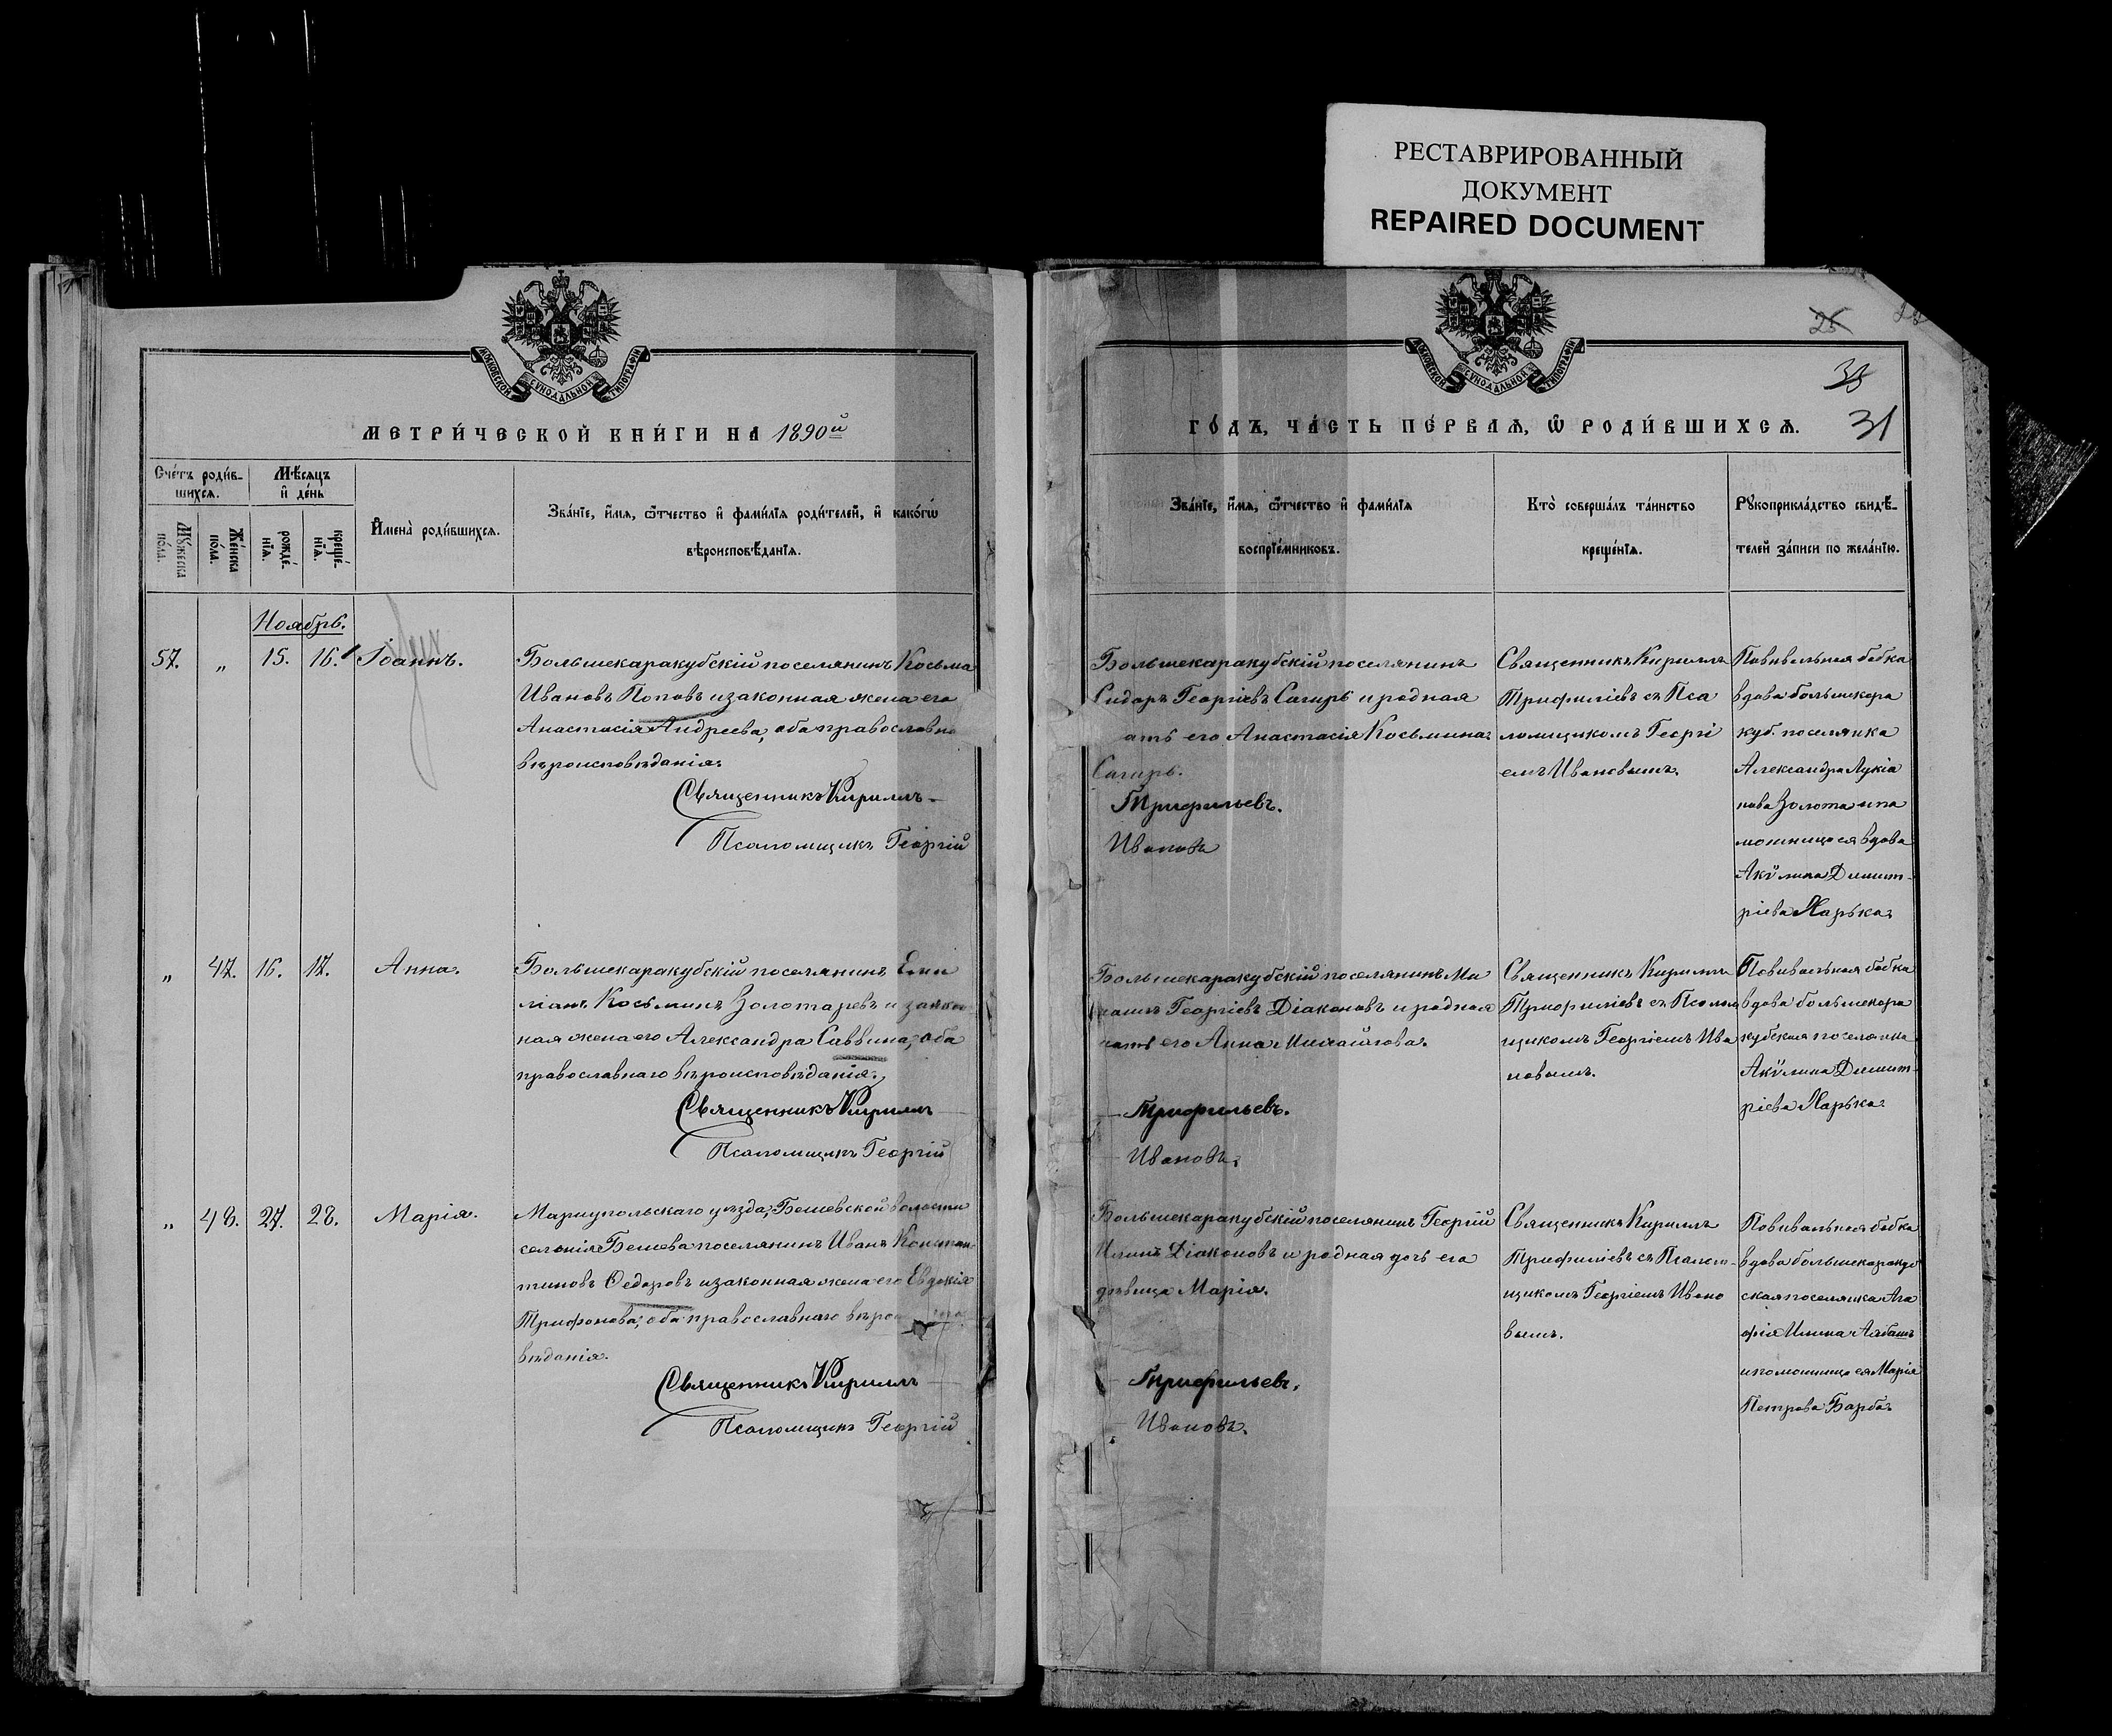 РЕСТАВРИРОВАННЫЙ
ДОКУМЕНТ
REPAIRED DOCUMENT
МОСКОВСКОЙ СѴНОДАЛЬНОЙ ТИПОГРАФІИ
МЕТРИ́ЧЕСКОЙ КНИ́ГИ НА 1890й
Сче́тъ роди́в-
шихся.
Мѣ́сяцъ
и҆ де́нь
Мꙋ́жеска
по́ла.
Же́нска
по́ла.
рожде́-
нїѧ.
креще́-
нїѧ.
И҆мена̀ роди́вшихся.
Зва́нїе, и҆́мѧ, ѻ҆́тчество и҆ фами́лїѧ роди́телей, и҆ како́гѡ
вѣроисповѣ́данїѧ.
Ноябрь.
57. „ 15. 16. Іоаннъ.
Большекаракубскій поселянинъ Косьма
Ивановъ Поповъ и законная жена его
Анастасія Андреева, оба православно
вѣроисповѣданія.
Священникъ Кириллъ
Псаломщикъ Георгій
„ 47. 16. 17. Анна.
Большекаракубскій поселянинъ Еми
ліанъ Косьминъ Золотаревъ и закон
ная жена его Александра Саввина, оба
православнаго вѣроисповѣданія.
Священникъ Кириллъ
Псаломщикъ Георгій
„ 48. 27. 28. Марія.
Маріупольскаго уѣзда, Бешевской волости
селенія Бешева поселянинъ Иванъ Констан-
тиновъ Федоровъ и законная жена его Евдокія
Трифонова, оба православнаго вѣро
вѣданія.
Священникъ Кириллъ
Псаломщикъ Георгій
МОСКОВСКОЙ СѴНОДАЛЬНОЙ ТИПОГРАФІИ
25
33
31
ГО́ДЪ, ЧА́СТЬ ПЕ́РВАѦ, Ѡ҆ РОДИ́ВШИХСѦ.
Зва́нїе, и҆́мѧ, ѻ҆́тчество и҆ фами́лїѧ
воспрїе́мниковъ.
Кто̀ соверша́лъ та́инство
креще́нїѧ.
Рꙋкоприкла́дство свидѣ́-
телей за́писи по жела́нїю.
Большекаракубскій поселянинъ
Сидоръ Георгіевъ Сагиръ и родная
ать его Анастасія Косьмина
Сагиръ.
Трифильевъ.
Ивановъ
Священникъ Кириллъ
Трифиліевъ съ Пса
ломщикомъ Георгі
емъ Ивановымъ.
Повивальная бабка
вдова большекара
куб. поселянка
Александра Лукіа
нова Золота и по
мощница ея вдова
Акѵлина Димит-
ріева Харька.
Большекаракубскій поселянинъ Ми
хаилъ Георгіевъ Діаконовъ и родная
мать его Анна Михайлова.
Трифильевъ.
Ивановъ.
Священникъ Кириллъ
Трифиліевъ съ Псалом
щикомъ Георгіемъ Ива
новымъ.
Повивальная бабка
вдова большекара
кубская поселянка
Акѵлина Димит-
ріева Харька.
Большекаракубскій поселянинъ Георгій
Ильинъ Діаконовъ и родная дочь его
дѣвица Марія.
Трифильевъ.
Ивановъ.
Священникъ Кириллъ
Трифиліевъ съ Псалом-
щикомъ Георгіемъ Ивано
вымъ.
Повивальная бабка
вдова большекаракуб
ская поселянка Ага
фія Ильина
и помощница ея Марія
Петрова Барба.